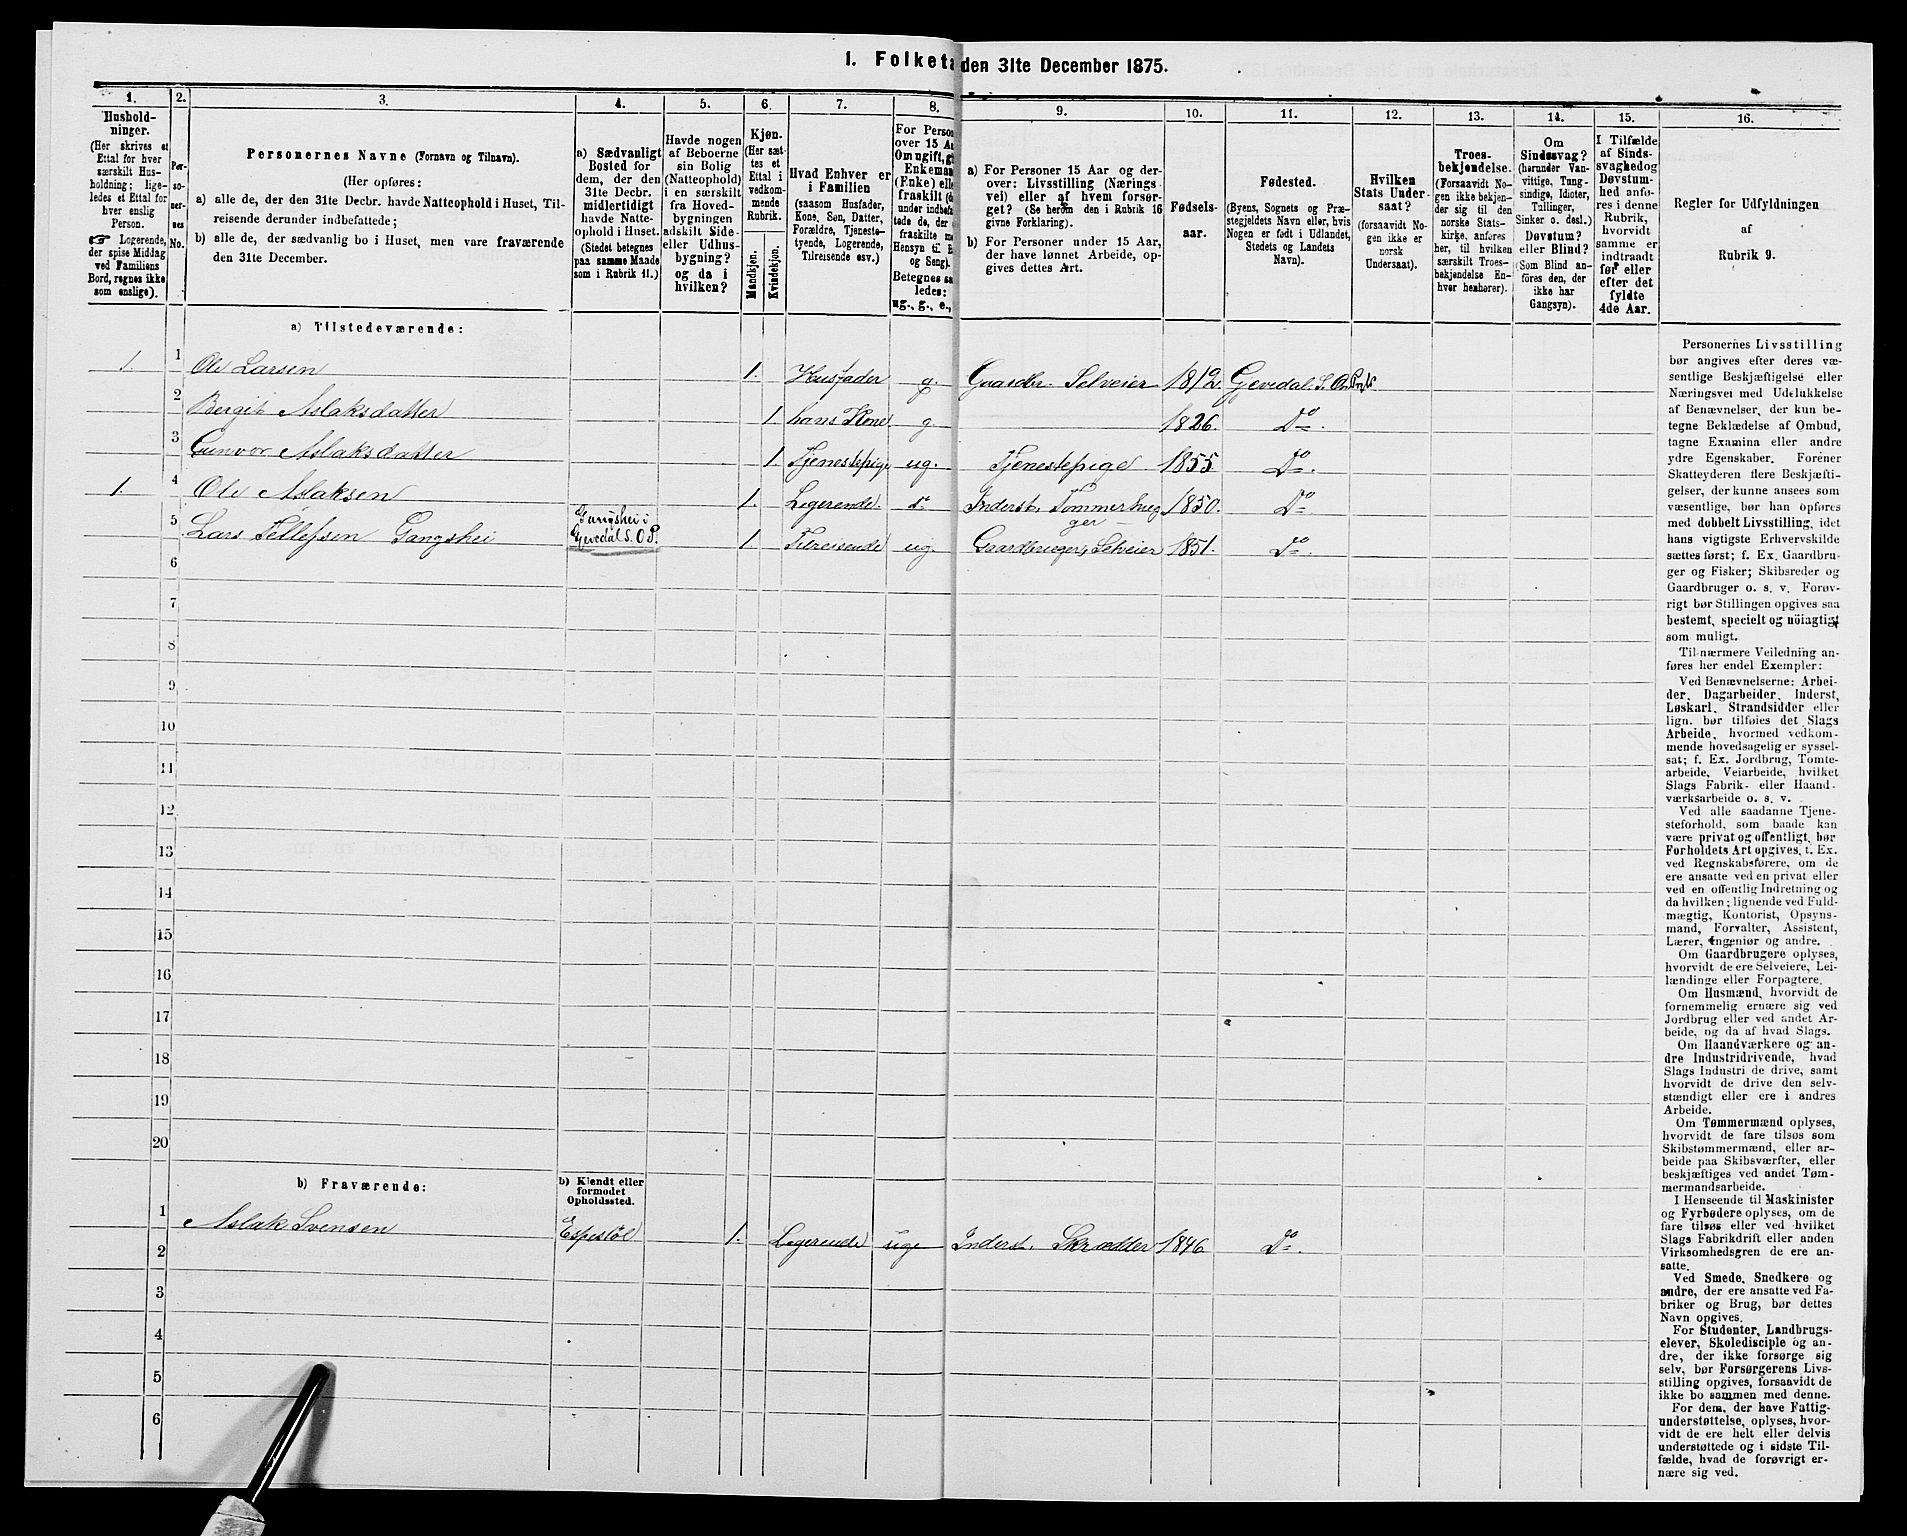 1. Folketæ den 31te December 1875.
1. 2. 3. 4. 5. 6. 7. 8. 9. 10. 11. 12. 13. 14. 15. 16.
Hushold-
ninger.
(Her skrives et
Ettal for hver
særskilt Hus-
holdning; lige-
ledes et Ettal for
hver enslig
Person.
☞ Logerende,
der spise Middag
ved Familiens
Bord, regnes ikke
som enslige).
Per-
so-
ner-
nes
No.
Personernes Navne (Fornavn og Tilnavn).
(Her opføres:
a) alle de, der den 31te Decbr. havde Natteophold i Huset, Til-
reisende derunder indbefattede;
b) alle de, der sædvanlig bo i Huset, men vare fraværende
den 31te December.
a) Sædvanligt
Bosted for
dem, der den
31te Decbr.
midlertidigt
havde Natte-
ophold i Huset.
(Stedet betegnes
paa samme Maade
som i Rubrik 11.)
Havde nogen
af Beboerne
sin Bolig
(Natteophold)
i en særskilt
fra Hoved-
bygningen
adskilt Side-
eller Udhus-
bygning?
og da i
hvilken?
Kjøn.
(Her sæt-
tes et
Ettal i
vedkom-
mende
Rubrik.
Mandkjøn.
Kvindekjøn.
Hvad Enhver er
i Familien
(saasom Husfader,
Kone, Søn, Datter,
Forældre, Tjeneste-
tyende, Logerende,
Tilreisende osv.)
For Person
over 15 Aa
Om ugift, g
Enkeman
(Enke) elle
fraskilt (d
under indbefa
tede de, der e
fraskilte me
Hensyn til B
og Seng).
Betegnes saa
ledes:
ug., g., e.,
a) For Personer 15 Aar og der-
over: Livsstilling (Nærings-
vei) eller af hvem forsør-
get? (Se herom den i Rubrik 16
givne Forklaring).
b) For Personer under 15 Aar,
der have lønnet Arbeide, op-
gives dettes Art.
Fødsels-
aar.
Fødested.
(Byens, Sognets og Præ-
stegjeldets Navn eller, hvis
Nogen er født i Udlandet,
Stedets og Landets
Navn).
Hvilken
Stats Under-
saat?
(forsaavidt No-
gen ikke er
norsk
Undersaat).
Troes-
bekjendelse.
(Forsaavidt No-
gen ikke bekjen-
der sig til den
norske Stats-
kirke, anføres
her, til hvilken
særskilt Troes-
bekjendelse En-
hver henhører).
Om
Sindssvag?
(herunder Van-
vittige, Tung-
sindige, Idioter,
Tullinger,
Sinker o. desl.)
Døvstum?
eller Blind?
(Som Blind an-
føres den, der
ikke har
Gangsyn).
I Tilfælde
af Sinds-
svaghed og
Døvstum-
hed anfø-
res i denne
Rubrik,
hvorvidt
samme er
indtraadt
før eller
efter det
fyldte
4de Aar.
Regler for Udfyldningen
af
Rubrik 9.
a) Tilstedeværende:
1. 1 Ole Larsen 1. Husfader g Gaardbr. Selveier 1812 Gjevedal S. Omli Prgj.
2 Bergit Aslaksdatter 1. hans Kone g 1826. Do.
3 Gunvor Aslaksdatter 1. Tjenestepige ug. Tjenestepige 1855 Do.
1. 4 Ole Aslaksen 1. Logerende. do Inderst, Tømmerhug
ger 1850. Do
5 Lars Tellefsen Gangshei Gangshei i
Gjevedal S. O P. 1. Tilreisende ug. Gaardbruger, Selveier 1851. Do.
6
7
8
9
10
11
12
13
14
15
16
17
18
19
20
b) Fraværende:
b) Kjendt eller
formodet
Opholdssted.
1 Aslak Svensen Espestøl 1. Logerende uge Inderst, Skrædder 1846 Do.
2
3
4
5
6
Personernes Livsstilling
bør angives efter deres væ-
sentlige Beskjæftigelse eller
Næringsvei med Udelukkelse
af Benævnelser, der kun be-
tegne Beklædelse af Ombud,
tagne Examina eller andre
ydre Egenskaber. Forener
Skatteyderen flere Beskjæfti-
gelser, der kunne ansees som
væsentlige, bør han opføres
med dobbelt Livsstilling, idet
hans vigtigste Erhvervskilde
sættes først; f. Ex. Gaardbru-
ger og Fisker; Skibsreder og
Gaardbruger o. s. v. Forøv-
rigt bør Stillingen opgives saa
bestemt, specielt og nöiagtigt
som muligt.
Til nærmere Veiledning an-
føres her endel Exempler:
Ved Benævnelserne: Arbei-
der, Dagarbeider, Inderst,
Løskarl, Strandsidder eller
lign. bør tilføies det Slags
Arbeide, hvormed vedkom-
mende hovedsagelig er syssel-
sat; f. Ex. Jordbrug, Tomte-
arbeide, Veiarbeide, hvilket
Slags Fabrik- eller Haand-
værksarbeide o. s. v.
Ved alle saadanne Tjene-
steforhold, som baade kan
være privat og offentligt, bør
Forholdets Art opgives, t. Ex.
ved Regnskabsførere, om de
ere ansatte ved en privat eller
ved en offentlig Indretning og
da hvilken; lignende ved Fuld-
mægtig, Kontorist, Opsyns-
mand, Forvalter, Assistent,
Lærer, Ingeniør og andre.
Om Gaardbrugere oplyses,
hvorvidt de ere Selveiere, Lei-
lændinge eller Forpagtere.
Om Husmænd, hvorvidt de
fornemmelig ernære sig ved
Jordbrug eller ved andet Ar-
beide, og da af hvad Slags.
Om Haandværkere og an-
dre Industridrivende, hvad
Slags Industri de drive, samt
hvorvidt de drive den selv-
stændigt eller ere i andres
Arbeide.
Om Tømmermænd oplyses,
hvorvidt de fare tilsøs som
Skibstømmermænd, eller ar-
beide paa Skibsværfter, eller
beskjæftiges ved andet Tøm-
mermandsarbeide.
I Henseende til Maskinister
og Fyrbødere oplyses, om de
fare tilsøs eller ved hvilket
Slags Fabrikdrift eller anden
Virksomhedsgren de ere an-
satte.
Ved Smede, Snedkere og
andre, der ere ansatte ved Fa-
briker og Brug, bør dettes
Navn opgives.
For Studenter, Landbrugs-
elever, Skoledisciple og an-
dre, der ikke forsørge sig
selv, bør Forsørgerens Livs-
stilling opgives, forsaavidt de
ikke bo sammen med denne.
For dem, der have Fattig-
understøttelse, oplyses, hvor-
vidt de ere helt eller delvis
understøttede og i sidste Til-
fælde, hvad de forøvrigt er-
nære sig ved.